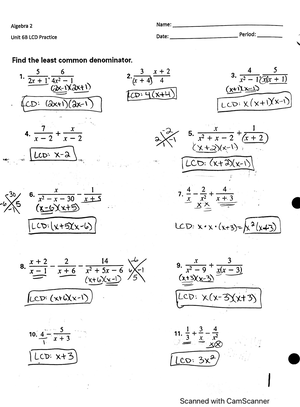 Algebra 2
Name:
Unit 6B LCD Practice
Date: Period:
Find the least common denominator.
1. 5/(2x + 1) - 6/(4x² - 1)
(2x-1)(2x+1)
LCD: (2x+1)(2x-1)
2. 3/(x + 4) · (x + 2)/4
LCD: 4(x+4)
3. 4/(x² - 1) · 5/(x(x + 1))
(x+1)(x-1)
LCD: x(x+1)(x-1)
4. 7/(x - 2) + x/(x - 2)
LCD: x-2
5. x/(x² + x - 2) + 1/(x + 2)
(x+2)(x-1)
LCD: (x+2)(x-1)
6. x/(x² - x - 30) - 1/(x + 5)
(x-6)(x+5)
LCD: (x+5)(x-6)
7. 4/x - 2/x² + 4/(x + 3)
x x
LCD: x · x · (x+3) = x²(x+3)
8. (x + 2)/(x - 1) - 2/(x + 6) - 14/(x² + 5x - 6)
(x+6)(x-1)
LCD: (x+6)(x-1)
9. x/(x² - 9) + 3/(x(x - 3))
(x+3)(x-3)
LCD: x(x-3)(x+3)
10. 4/1 - 5/(x + 3)
LCD: x+3
11. 1/3 + 3/x - 4/x²
LCD: 3x²
Scanned with CamScanner